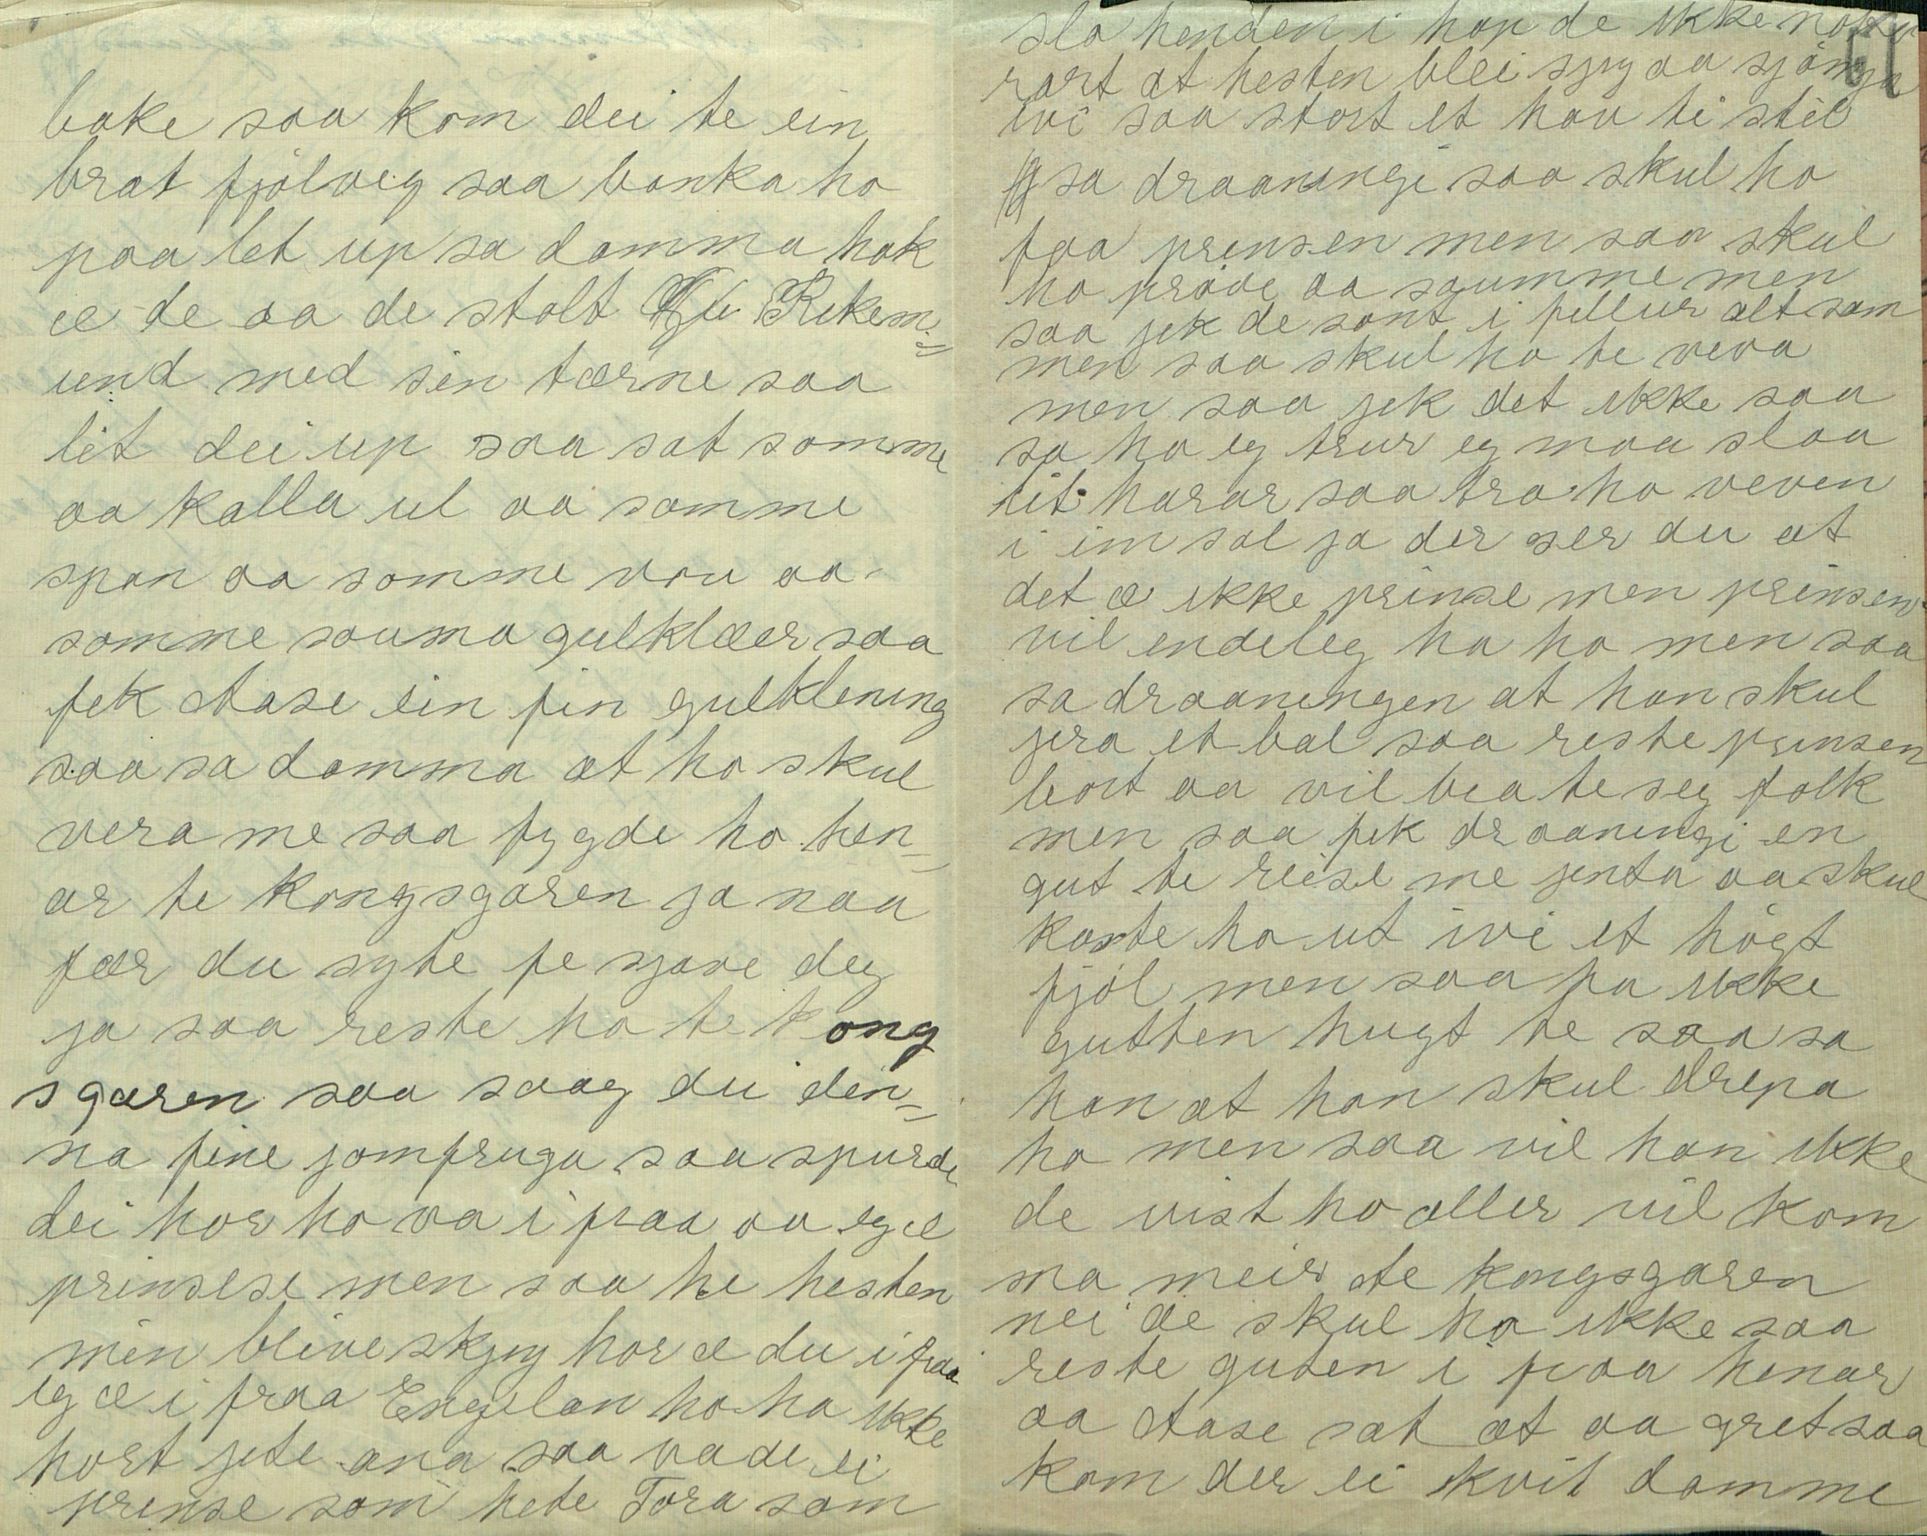 bake saa kom dei te ein
brat fjølveg saa banka ho
paa let up sa damma hak
æ de aa de stolt Rikem=
und med sin tærne saa
lit dei up saa sat somme
aa kalla ul aa somme
span aa somme vou aa
somme souma gulklæer saa
fek Aase ein fin gulklening
saa sa damma at ho skul
vera me saa fygde ho hen=
ar te kongsgaren ja naa
fær du syte fe sjøve deg
ja saa reste ho te kong
sgaren saa saag du den=
na fine jomfruga saa spurde
dei hor ho va i fraa aa eg æ
prinsese men saa he hesten
min blive skjyg hor æ du i fraa
eg æ i fraa Engelan ho ha ikke
hort jete ana saa va de ei
prinse som hete Tora som
slo henden i hop de ikke noke
rart at hesten blei sjyg aa sjöngn
ivi saa stort et hav ti stel
sa draaningi saa skul ho
faa prinsen men saa skul
ho pröve aa soumme men
saa jek de sont i filler alt sam
men saa skul ho te veva
men saa jek det ikke saa
sa ho eg trur eg maa slaa
lit harar saa bra ho veven
i im sal ja der ser du at
det æ ikke prinse men prinsen
vil endeleg ha ho men saa
sa draaningen at han skul
jera et bal saa reste prinsen
bort aa vil bea te seg folk
men saa fek draaningi en
gut te reise me jenta aa skul
kaste ho ut ivi et högt
fjöl men saa ha ikke
gutten hugt te saa sa
han at han skul drepa
ho men saa vil han ikke
de vist ho aller vil kom
ma meir te kongsgaren
nei de skul ho ikke saa
reste guten i fraa henar
aa Aase sat at aa gret saa
kom der ei kvit damme
51